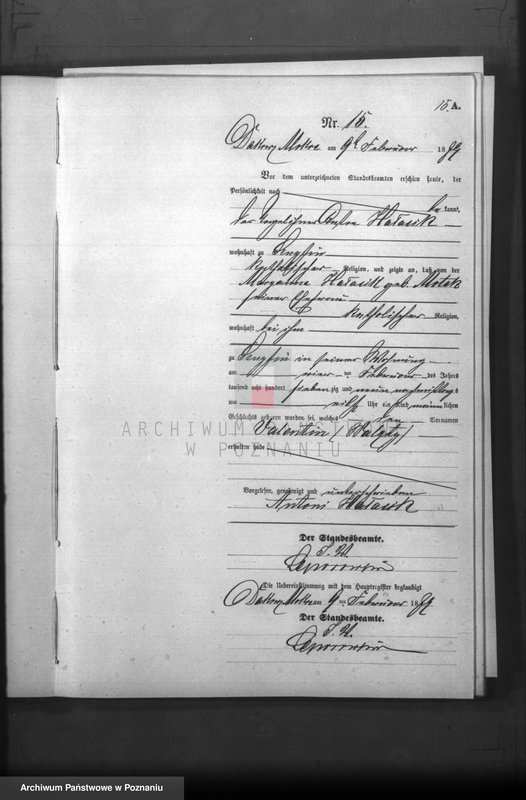 15. A.
Nr. 15.
Dakowy Mokre am 9 Februar 1889
Vor dem unterzeichneten Standesbeamten erschien heute, der
Persönlichkeit nach
be kannt,
der Anton Hałasik
wohnhaft zu
katholischer Religion, und zeigte an, daß von der
Margaretha Hałasik geb.
seiner Ehefrau
katholischer Religion,
wohnhaft bei ihm
zu in seiner Wohnung
am ten Februar des Jahres
tausend acht hundert zig und neun nachmittags
um Uhr ein Kind männ lichen
Geschlechts geboren worden sei, welches Vornamen
Valentin (Walenty)
erhalten habe
Vorgelesen, genehmigt und unterschrieben
Antoni Hałasik
Der Standesbeamte.
Die Uebereinstimmung mit dem Hauptregister beglaubigt
Dakowy Mokre am 9 ten Februar 1889
Der Standesbeamte.
ARCHIWUM PAŃSTWOWE
W POZNANIU
Archiwum Państwowe w Poznaniu